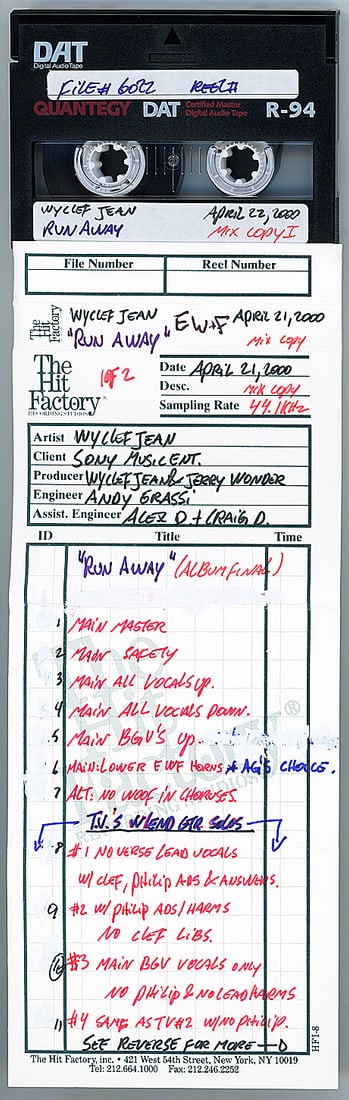 DAT
Digital Audio Tape
FILE# 6022 REEL#
QUANTEGY DAT Certified Master Digital Audio Tape R-94
WYCLEF JEAN APRIL 22, 2000
RUN AWAY MIX COPY I
File Number Reel Number
The Hit Factory
WYCLEF JEAN EW+F APRIL 21, 2000
"RUN AWAY" MIX COPY
The Hit Factory®
RECORDING STUDIOS
1 of 2
Date APRIL 21, 2000
Desc. MIX COPY
Sampling Rate 44.1KHz
Artist WYCLEF JEAN
Client SONY MUSIC ENT.
Producer WYCLEF JEAN & JERRY WONDER
Engineer ANDY GRASSI
Assist. Engineer ALEX D. + CRAIG D.
ID Title Time
"RUN AWAY" (ALBUM FINAL)
1 MAIN MASTER
2 MAIN SAFETY
3 MAIN ALL VOCALS UP.
4 MAIN ALL VOCALS DOWN.
5 MAIN BGV'S UP
6 MAIN: LOWER EWF HORNS * AG'S CHOICE.
7 ALT: NO WOOF IN CHORUSES.
T.V.'S W/END GTR SOLOS
8 #1 NO VERSE LEAD VOCALS
W/ CLEF, PHILIP ADS & ANSWERS.
9 #2 W/ PHILIP ADS/HARMS
NO CLEF LIBS.
10 #3 MAIN BGV VOCALS ONLY
NO PHILIP & NO LEAD HARMS
11 #4 SAME AS TV#2 W/NO PHILIP.
SEE REVERSE FOR MORE
The Hit Factory®
RECORDING STUDIOS
HFI-8
The Hit Factory, inc. • 421 West 54th Street, New York, NY 10019
Tel: 212.664.1000 Fax: 212.246.2252